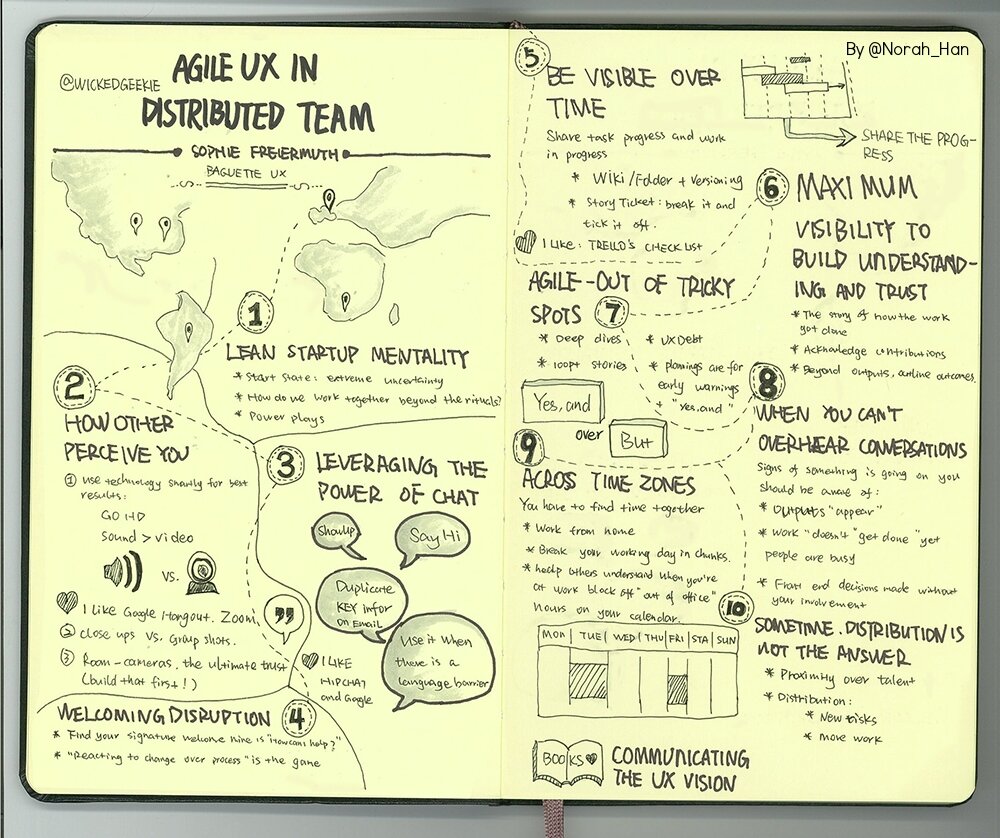 By @Norah_Han
@WICKEDGEEKIE
AGILE UX IN
DISTRIBUTED TEAM
SOPHIE FREIERMUTH
BAGUETTE UX
1
LEAN STARTUP MENTALITY
* Start state: extreme uncertainty
* How do we work together beyond the rituals?
* Power plays
2
HOW OTHER
PERCEIVE YOU
① use technology smartly for best
results:
GO HD
Sound > video
VS.
I like Google Hangout. Zoom.
② close ups VS. Group shots.
③ Room-cameras, the ultimate trust
(build that first!)
3
LEVERAGING THE
POWER OF CHAT
Show up
Say Hi
Duplicate
KEY infor
on EMAIL
Use it when
there is a
language barrier
I LIKE
HIPCHAT
and Google
4
WELCOMING DISRUPTION
* Find your signature welcome mine is "How can I help?"
* "Reacting to change over process" is the game
5
BE VISIBLE OVER
TIME
Share task progress and work
in progress
* Wiki/Folder + Versioning
* Story Ticket: break it and
tick it off.
I like: TRELLO'S CHECKLIST
SHARE THE PROG-
RESS
6
MAXIMUM
VISIBILITY TO
BUILD UNDERSTAND-
ING AND TRUST
* The story of how the work
got done
* Acknowledge contributions
* Beyond outputs, outline outcomes.
AGILE--OUT OF TRICKY
SPOTS 7
* Deep dives
* 100pt stories
* UX Debt
* plannings are for
early warnings
+ "Yes, and"
Yes, and
over
But
8
WHEN YOU CAN'T
OVERHEAR CONVERSATIONS
Signs of something is going on you
should be aware of:
* Outputs "appear"
* Work "doesn't" "get done" yet
people are busy
* Front end decisions made without
your involvement
9
ACROSS TIME ZONES
You have to find time together
* Work from home
* Break your working day in chunks.
* help others understand when you're
at work block off "out of office"
hours on your calendar.
MON TUE WED THU FRI STA SUN
10
SOMETIME. DISTRIBUTION IS
NOT THE ANSWER
* Proximity over talent
* Distribution:
* New risks
* more work
BOOKS
COMMUNICATING
THE UX VISION